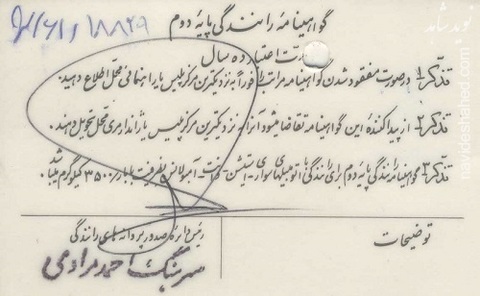 گواهینامه رانندگی پایه دوم
۱۸۸۲۹
مدت اعتبار ده سال
تذکر۱ درصورت مفقود شدن گواهینامه مراتب را فوراً به نزدیکترین مرکز پلیس یا راهنمائی محل اطلاع دهید.
تذکر۲ از پیدا کننده این گواهینامه تقاضا میشود آنرا به نزدیکترین مرکز پلیس یا ژاندارمری محل تحویل دهند.
تذکر۳ گواهینامه رانندگی پایه دوم برای رانندگی با اتومبیلهای سواری - استیشن - وانت - آمبولانس بظرفیت با بار ۳۵۰۰ کیلوگرم میباشد
توضیحات
رئیس دایره صدور پروانه های رانندگی
سرهنگ احمد مرادمی
نوید شاهد
navideshahed.com